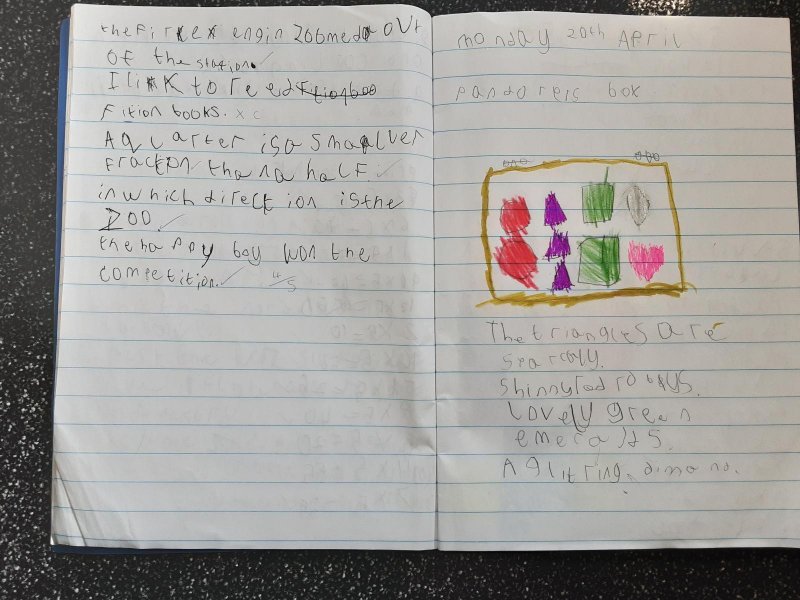 the Fire engin zoomed out
of the station.
I link to reed
Fition books. x c
A quarter is a smaller
fraction than a half
in which direction is the
ZOO
the happy boy won the
competition. 4/5
monday 20th April
pandoreis box
The triangles are
sparcaly.
Shinny red roubys.
Lovely green
emeralds.
A glitring dimond.